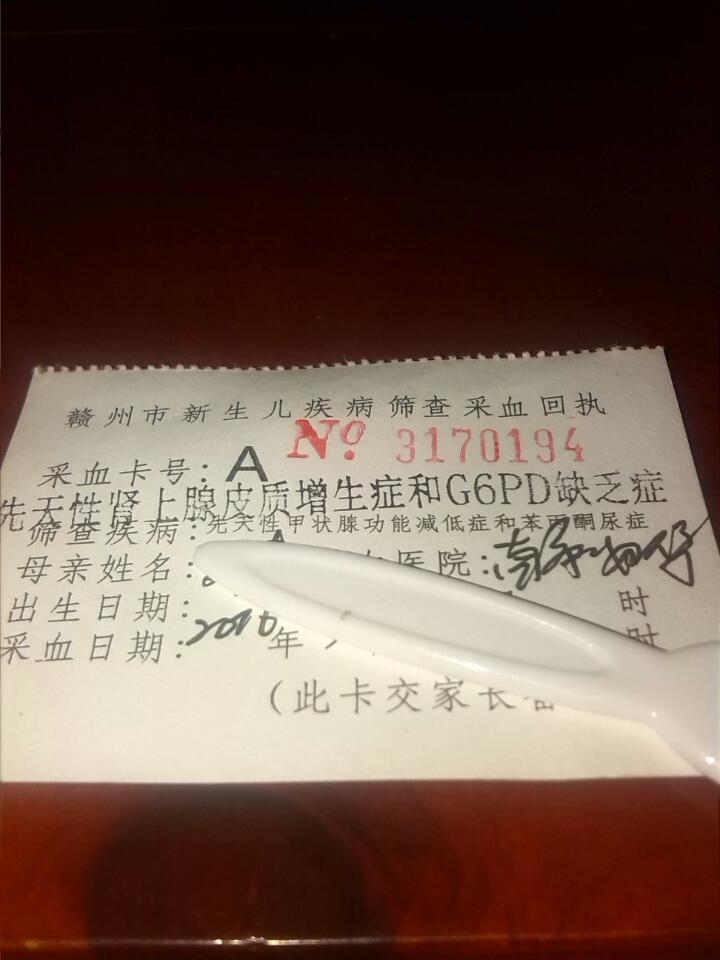 赣州市新生儿疾病筛查采血回执
采血卡号：A № 3170194
先天性肾上腺皮质增生症和G6PD缺乏症
筛查疾病：先天性甲状腺功能减低症和苯丙酮尿症
母亲姓名： 医院：
出生日期： 时
采血日期： 年 时
（此卡交家长